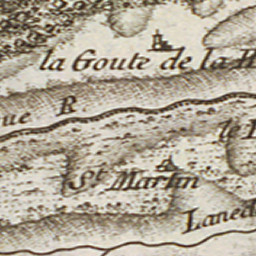 la Goute de la
ue R
le
St Martin
Laned